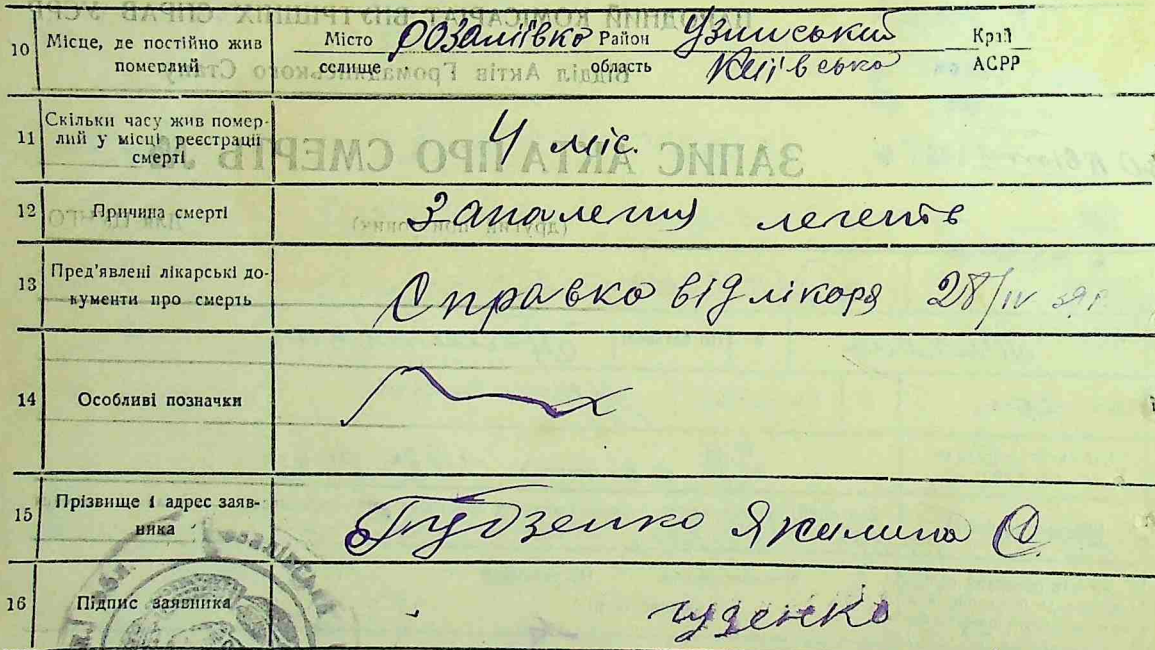 10 Місце, де постійно жив померлий Місто Розаліївка Район Узинський Край
селище область Київська АСРР
11 Скільки часу жив помер-
лий у місці реєстрації
смерті
4 міс.
12 Причина смерті Запалення легенів
13 Пред'явлені лікарські до-
кументи про смерть
Справка від лікаря 28/IV 39 р
14 Особливі позначки
15 Прізвище і адрес заяв-
ника
Якилина О
16 Підпис заявника гуденко